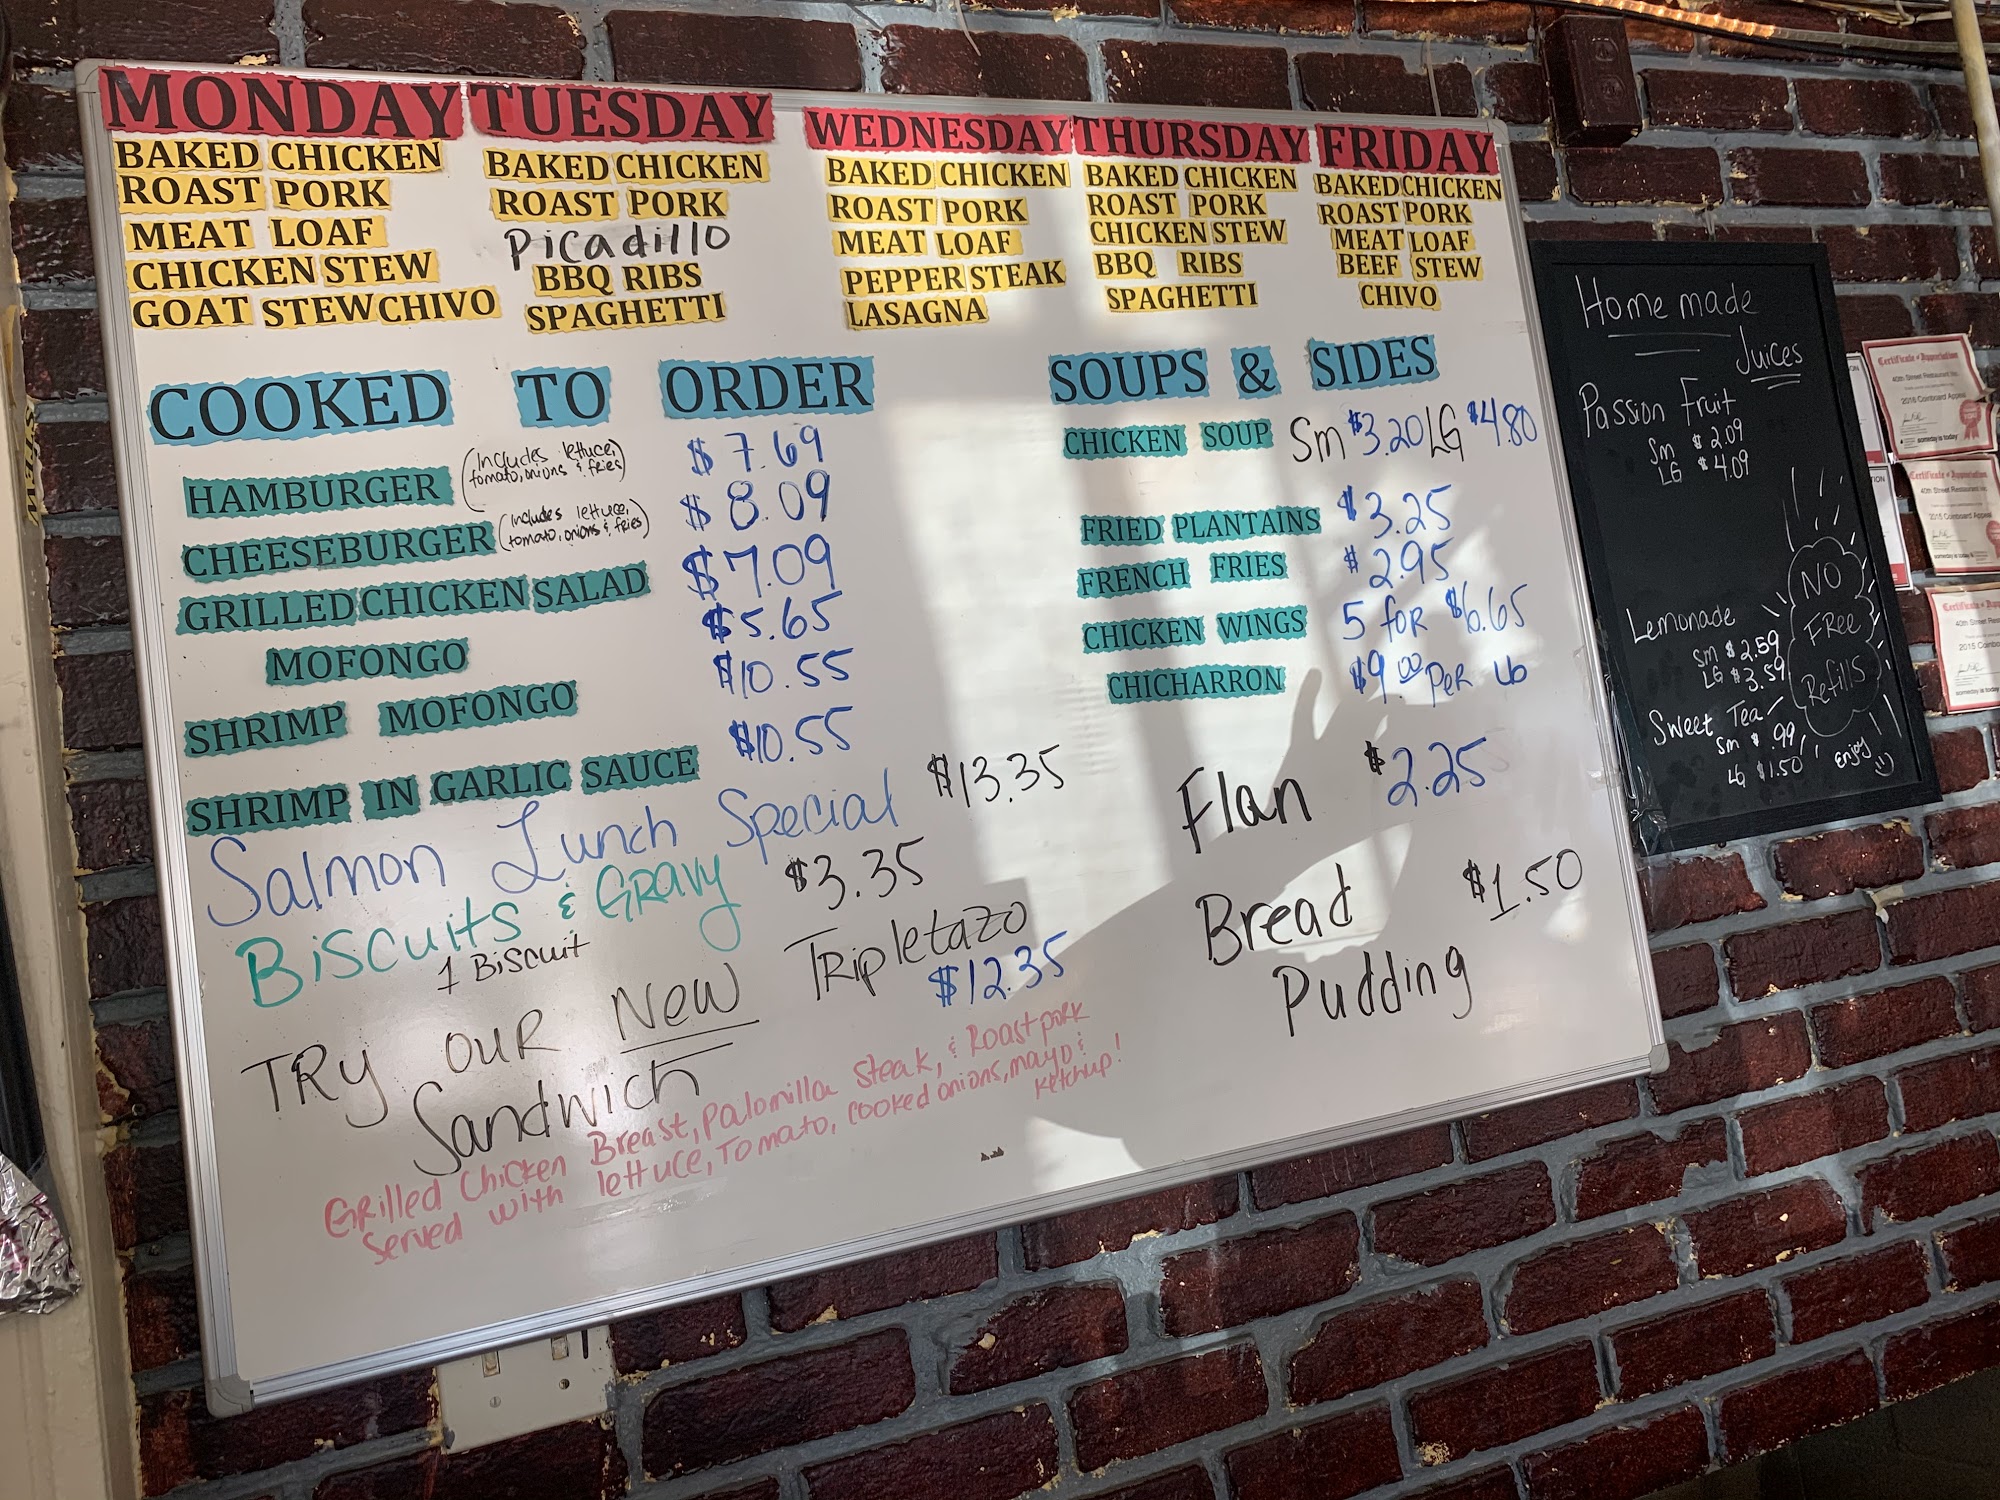 MONDAY
BAKED CHICKEN
ROAST PORK
MEAT LOAF
CHICKEN STEW
GOAT STEW CHIVO
TUESDAY
BAKED CHICKEN
ROAST PORK
Picadillo
BBQ RIBS
SPAGHETTI
WEDNESDAY
BAKED CHICKEN
ROAST PORK
MEAT LOAF
PEPPER STEAK
LASAGNA
THURSDAY
BAKED CHICKEN
ROAST PORK
CHICKEN STEW
BBQ RIBS
SPAGHETTI
FRIDAY
BAKED CHICKEN
ROAST PORK
MEAT LOAF
BEEF STEW
CHIVO
COOKED TO ORDER
HAMBURGER (Includes lettuce, $7.69
tomato, onions & fries)
CHEESEBURGER (Includes lettuce, $8.09
tomato, onions & fries)
GRILLED CHICKEN SALAD $7.09
MOFONGO $5.65
SHRIMP MOFONGO $10.55
SHRIMP IN GARLIC SAUCE $10.55
Salmon Lunch Special $13.35
Biscuits & GRAVY $3.35
1 Biscuit
TRY OUR NEW Tripletazo
Sandwich $12.35
Grilled Chicken Breast, Palomilla Steak, & Roast pork
Served with lettuce, Tomato, cooked onions, mayo &
ketchup!
SOUPS & SIDES
CHICKEN SOUP Sm $3.20 LG $4.80
FRIED PLANTAINS $3.25
FRENCH FRIES $2.95
CHICKEN WINGS 5 for $6.65
CHICHARRON $9.00 per lb
Flan $2.25
Bread $1.50
Pudding
Home made
Juices
Passion Fruit
Sm $2.09
LG $4.09
Lemonade
Sm $2.59
LG $3.59
Sweet Tea
Sm $.99
LG $1.50
NO
FREE
Refills
enjoy
Certificate of Appreciation
40th Street Restaurant Inc.
2016 Comboard Appeal
someday is today
Certificate of Appreciation
40th Street Restaurant Inc.
2015 Comboard Appeal
someday is today